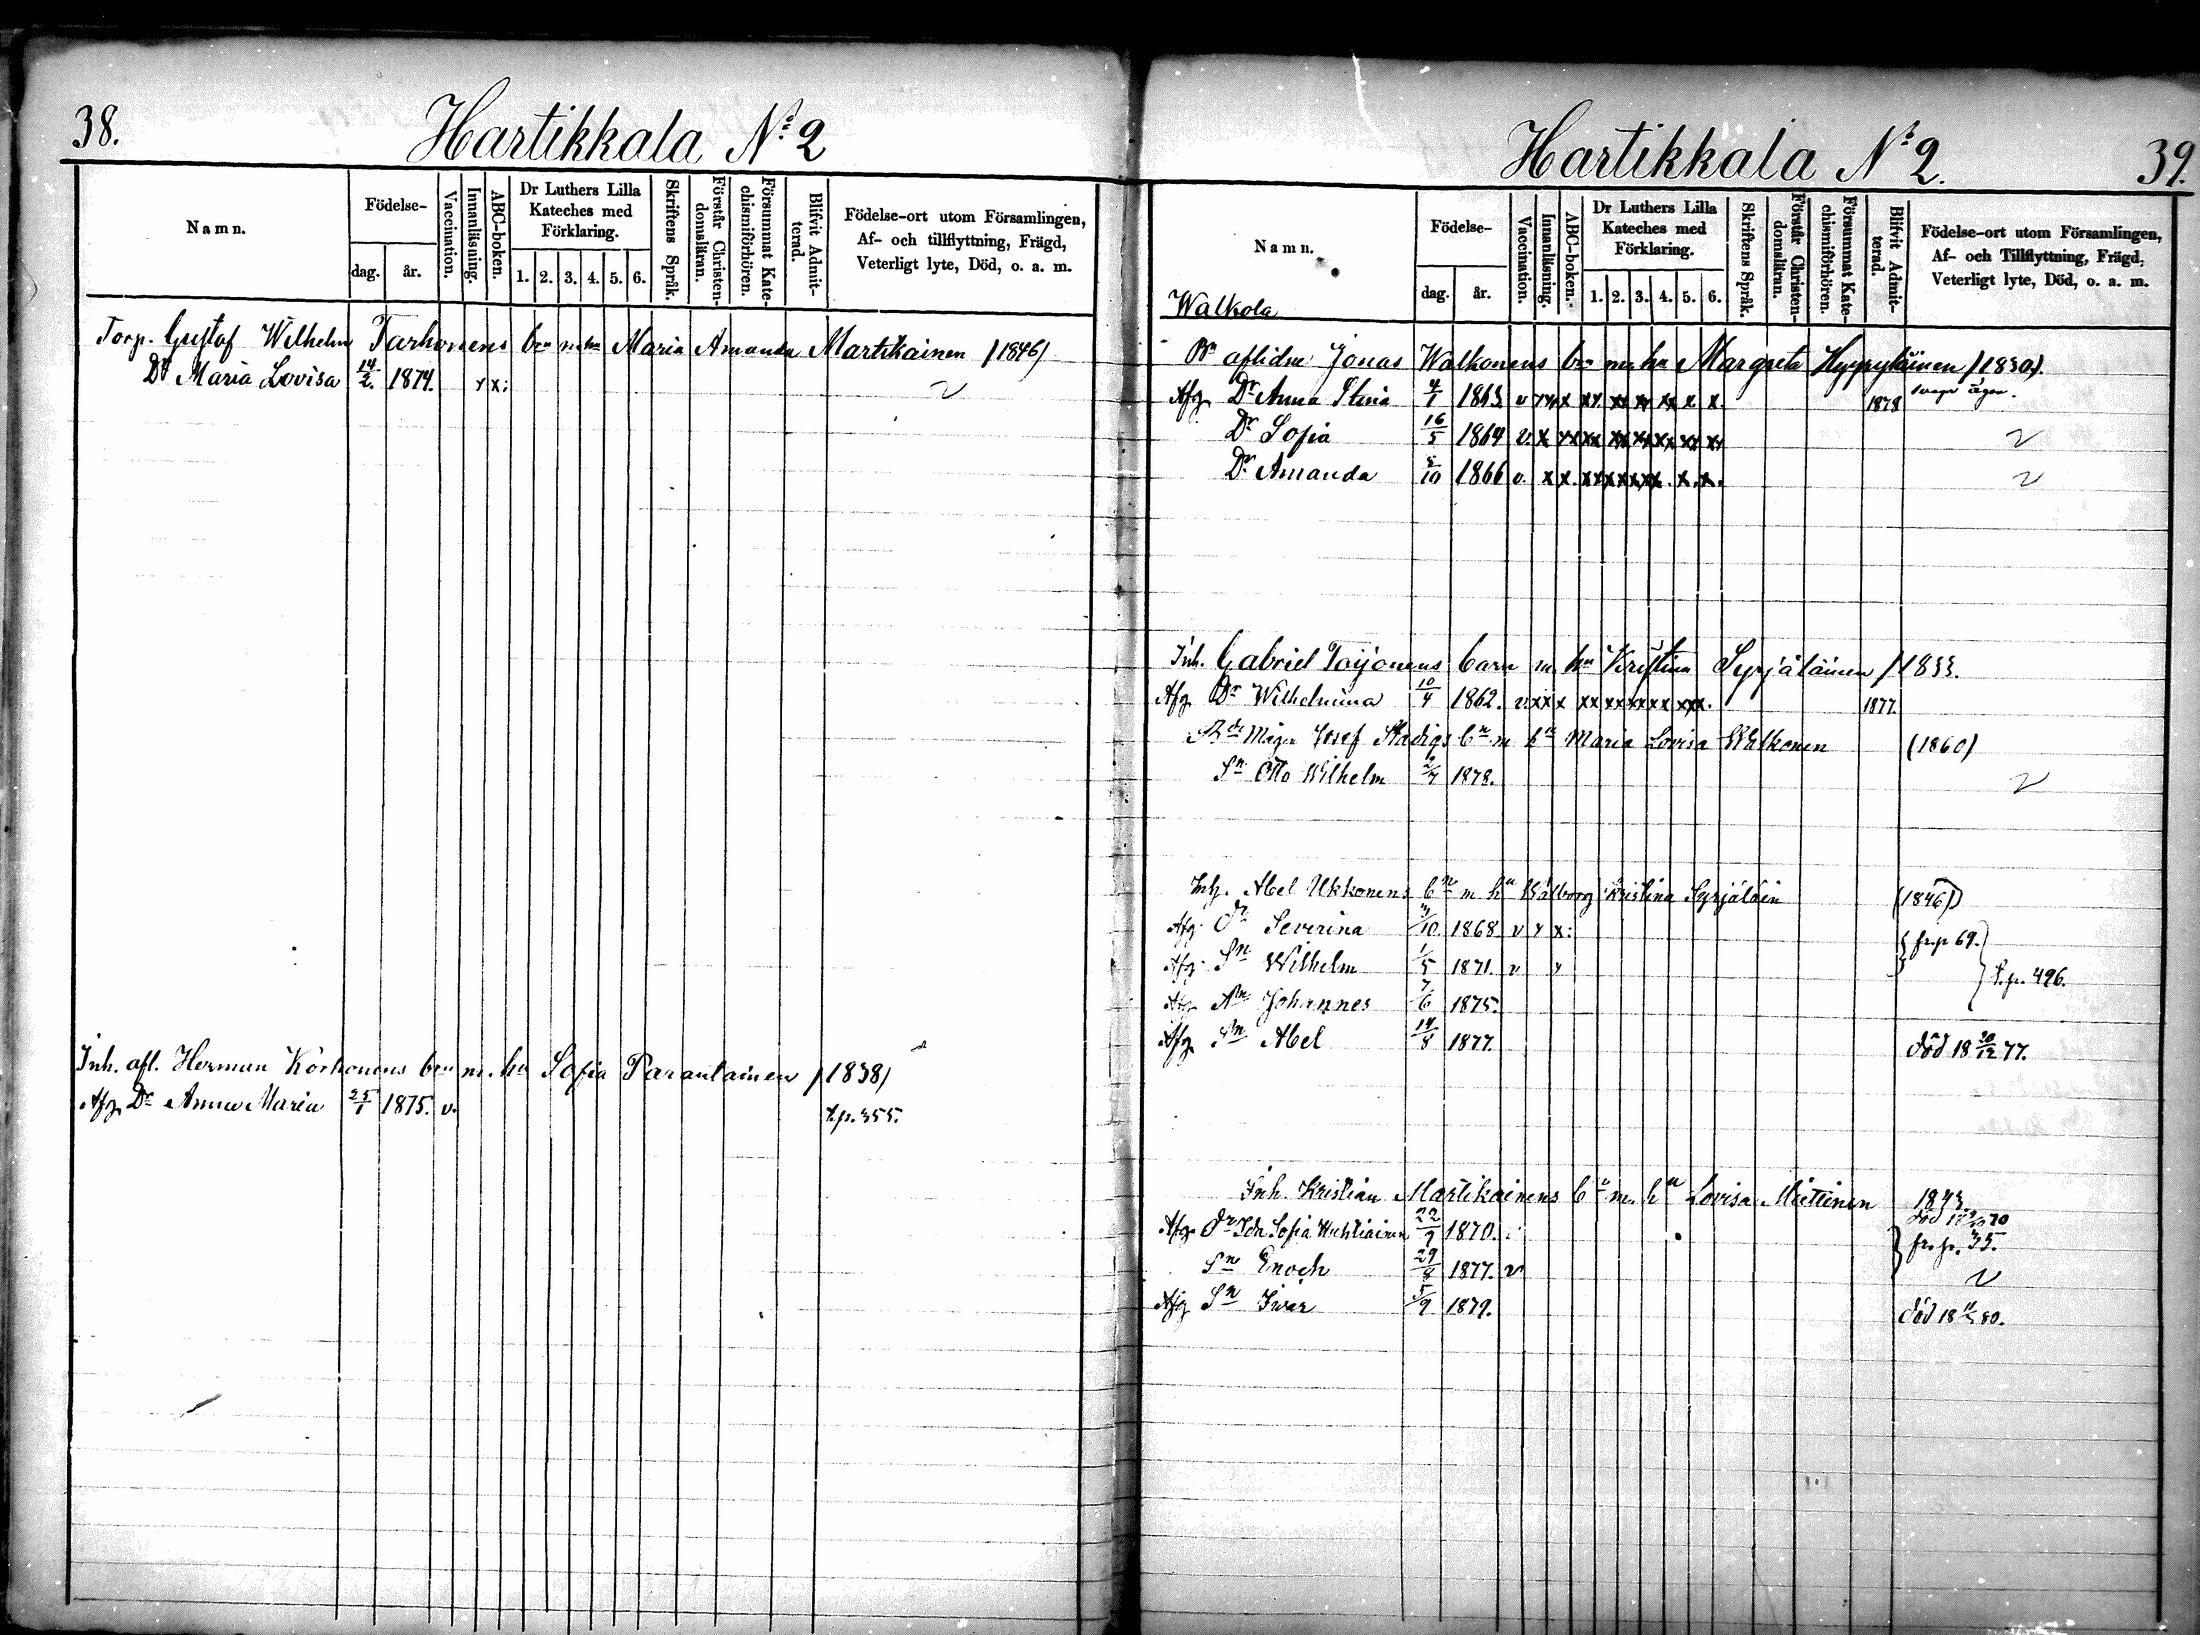 38.
Hartikkala N:o 2
Namn.
Födelse-
dag.
år.
Vaccination.
Innanläsning.
ABC-boken.
Dr Luthers Lilla
Kateches med
Förklaring.
1. 2. 3. 4. 5. 6.
Skriftens Språk.
Förstår Christen-
domsläran.
Försummat Kate-
chismiförhören.
Blifvit Admit-
terad.
Födelse-ort utom Församlingen,
Af- och tillflyttning, Frägd,
Veterligt lyte, Död, o. a. m.
Torp. Gustaf Wilhelm Tarhonens brn m hu Maria Amanda Martikainen (1846)
Dr Maria Lovisa 14/2. 1874. x x:
Inh. afl. Herman Korhonens brn m. hu Sofia Parantainen (1838)
Afg. Dr Anna Maria 25/1 1875. v. t.p. 355.
Hartikkala N:o 2.
39.
Namn.
Födelse-
dag.
år.
Vaccination.
Innanläsning.
ABC-boken.
Dr Luthers Lilla
Kateches med
Förklaring.
1. 2. 3. 4. 5. 6.
Skriftens Språk.
Förstår Christen-
domsläran.
Försummat Kate-
chismiförhören.
Blifvit Admit-
terad.
Födelse-ort utom Församlingen,
Af- och Tillflyttning, Frägd,
Veterligt lyte, Död, o. a. m.
Walkola
aflidne Jonas Walkonens brn m hu Margreta Hyppyläinen (1830).
Afg. Dr Anna Stina 4/1 1863 v xx x xx xx xx xx x x. 1878
Dr Sofia 16/5 1864 v. x xx xx xx xx xx xx xx
Dr Amanda /10 1866 v. x x. xx xx xx x. x. x.
Inh. Gabriel Toijonens barn m. hu Kristina Syrjäläinen (1833.
Afg. Dr Wilhelmina 10/4 1862. v xx x xx xx xx xx xxx. 1877.
Josef Stadigs bn m hu Maria Lovisa Walkonen (1860)
Sn Otto Wilhelm 2/7 1878.
Inh. Abel Ukkonens bn m hu Walborg Kristina Syrjäläin (1846)
Afg. Dr Severina /10. 1868. v x x: fr.p 69.
Afg. Sn Wilhelm 1/5 1871. v x t.p. 496.
Afg. Sn Johannes 7/6 1875.
Afg. Sn Abel 14/8 1877. död 18 30/12 77.
Inh. Kristian Martikainens bn m. hu Lovisa Miettinen 1843.
Afg. Dr Ida Sofia 22/9 1870. fr. p. 35.
Sn Enoch 29/8 1877. v
Afg. Sn Iwar 5/9 1879. död 18 80.